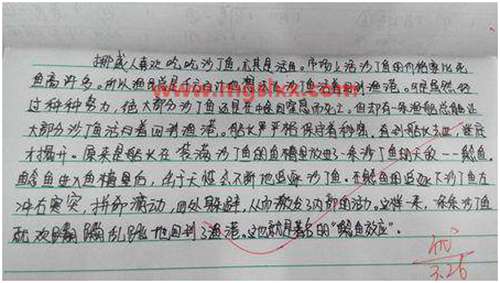 挪威人喜欢吃沙丁鱼,尤其是活鱼。市场上活沙丁鱼的价格要比死
鱼高许多。所以渔民总是千方百计地想让沙丁鱼活着回到渔港。可是虽然经
过种种努力,绝大部分沙丁鱼还是在中途因窒息而死亡。但却有一条渔船总能让
大部分沙丁鱼活着回到渔港。船长严格保守着秘密,直到船长去世,谜底
才揭开。原来是船长在装满沙丁鱼的鱼槽里放进了一条沙丁鱼的天敌——鲶鱼。
鲶鱼进入鱼槽里后,由于天性会不断地追逐沙丁鱼。在鲶鱼的追逐下沙丁鱼左
冲右突,拼命游动,四处躲避,从而激发了内部的活力。这样一来,一条条沙丁鱼
就欢蹦乱跳地回到了渔港。这也就是著名的“鲶鱼效应”。
www.mgslxx.com
优
3.26